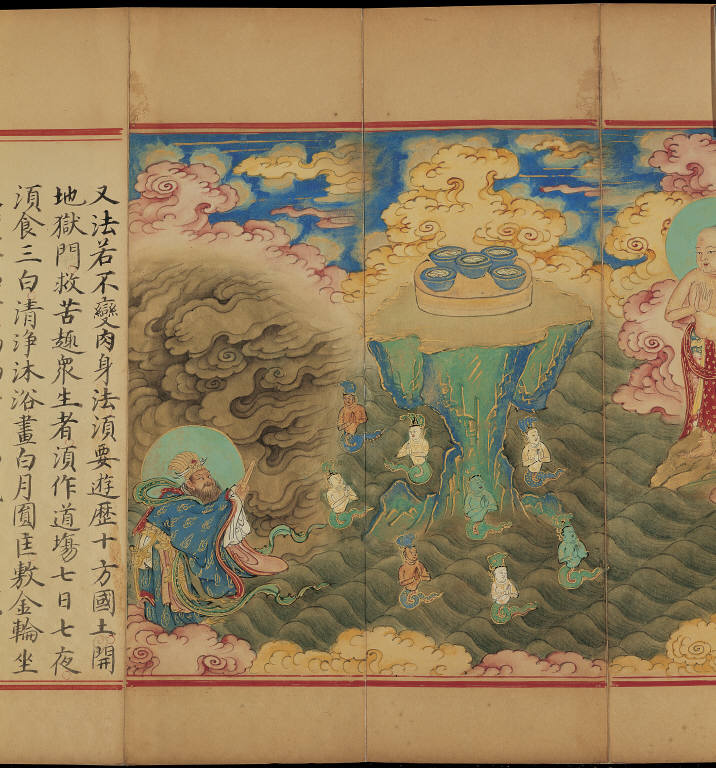 又法若不變肉身法湏要遊歷十方國土開
地獄門救苦趣衆生者湏作道塲七日七夜
湏食三白清淨沐浴畫白月圓匡敷金輪坐